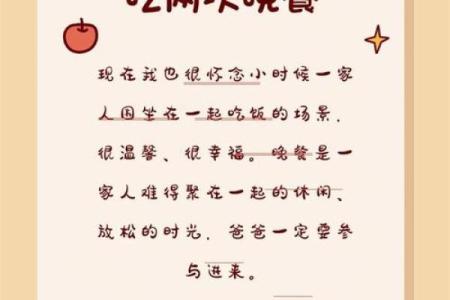 吃两次晚餐
现在我也很怀念小时候一家
人围坐在一起吃饭的场景，
很温馨、很幸福。晚餐是一
家人难得聚在一起的休闲、
放松的时光，爸爸一定要参
与进来。